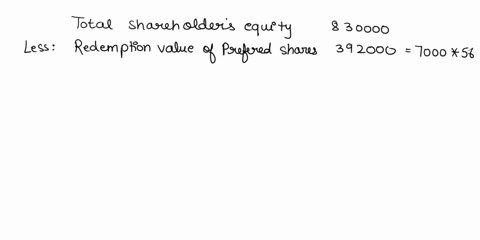 Total shareholder's equity 830000
Less: Redemption value of Prefered shares 392000 = 7000 * 56